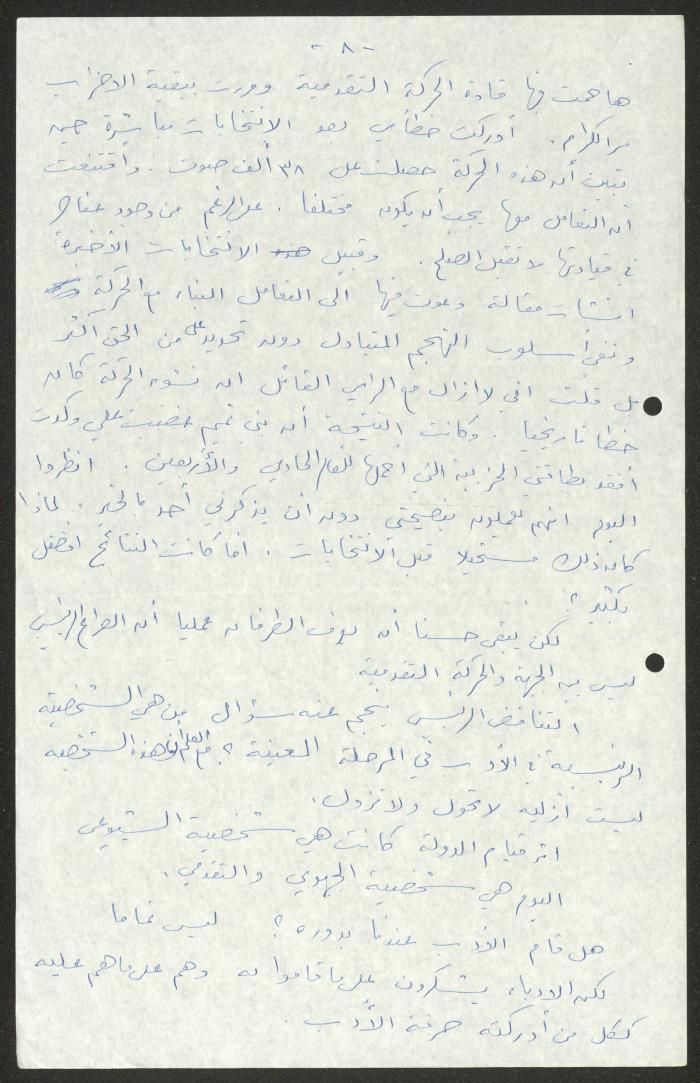 - ٨ -
هاجمت فيها قادة الحركة التقدمية ومررت ببقية الاحزاب
مر الكرام. أدركت خطأي بعد الانتخابات مباشرة حين
تبين أن هذه الحركة حصلت على ٣٨ ألف صوت. وأقتنعت
أن التعامل معها يجب أن يكون مختلفا. على الرغم من وجود عناصر
في قيادتها لا تقبل الصلح. وقبيل الانتخابات الأخيرة
انشأت مقالة دعوت فيها الى التعامل البناء مع الحركة
ونفي أسلوب التهجم المتبادل دون تحديد على من الحق أكثر
بل قلت اني لا ازال مع الرأي القائل ان نشوء الحركة كان
خطأ تاريخيا. وكانت النتيجة أن بني تميم غضبت علي وكدت
أفقد بطاقتي الحزبية التي أحملها للعام الحادي والأربعين. انظروا
اليوم انهم يعملون بنصيحتي دون أن يذكرني أحد بالخير. لماذا
كان ذلك مستحيلا قبل الانتخابات. أما كانت النتائج افضل
بكثير؟
لكن يبقى حسنا أن يعرف الطرفان عمليا أن الصراع الرئيسي
ليس بين الجبهة والحركة التقدمية
التناقض الرئيسي ينجم عنه سؤال من هي الشخصية
الرئيسية في الأدب في المرحلة المعينة؟ مع العلم أن هذه الشخصية
ليست أزلية لا تحول ولا تزول.
اثر قيام الدولة كانت هي شخصية الشيوعي
اليوم هي شخصية الجبهوي والتقدمي.
هل قام الأدب عندنا بدوره؟ ليس تماما
لكن الادباء يشكرون على ما قاموا به وهم على ما هم عليه
ككل من أدركته حرفة الأدب.